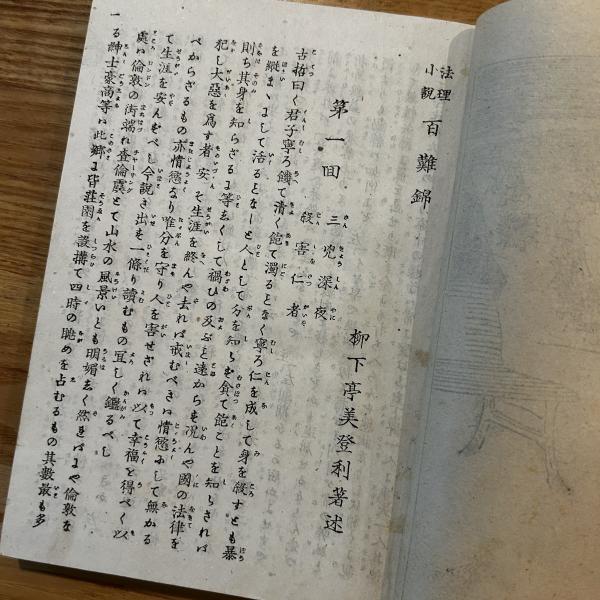 法理小説 百難錦
柳下亭美登利著述
第一回 三兇深夜殺害仁者
古哲曰く君子寧ろ饑て清く飽て濁るとなく寧ろ仁を成して身を殺すとも暴
を縦まゝにして活るとなしと人として分を知らず貪て飽ことを知らざれバ
則ち其身を知らざるに等しくして禍ひの及ぶと遠からず况んや國の法律を
犯し大惡を爲す者安んぞ生涯を終んや去れバ戒むべきハ情慾にして無かる
べからざるもの亦情慾なり唯分を守り人を害せざれバ以て幸福を得べく以
て生涯を安んずべし今説き出す一條り讀むもの宜しく鑑るべし
處ハ倫敦の街端れ查倫虞とて山水の風景いとも明媚なく然ればにや倫敦な
る紳士豪商等ハ此郷に皆莊園を設搆て四時の眺めを占むるもの其數最も多